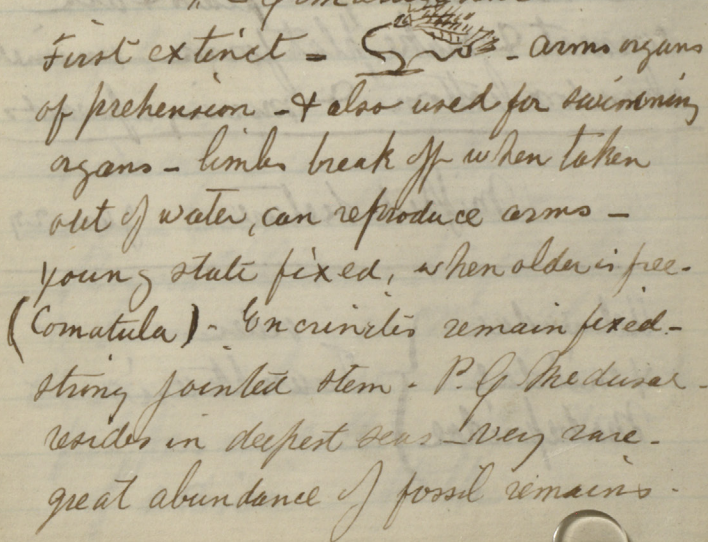 First extinct = - arms organs
of prehension - & also used for swimming
organs - limbs break off when taken
out of water, can reproduce arms -
young state fixed, when older is free.
(Comatula) - Encrinites remain fixed -
strong jointed stem - P. G Medusae -
resides in deepest seas - very rare -
great abundance of fossil remains.